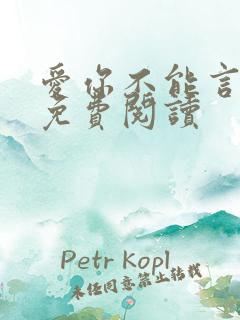 愛你不能言
免費閱讀
Petr Kopl
未經同意禁止轉載